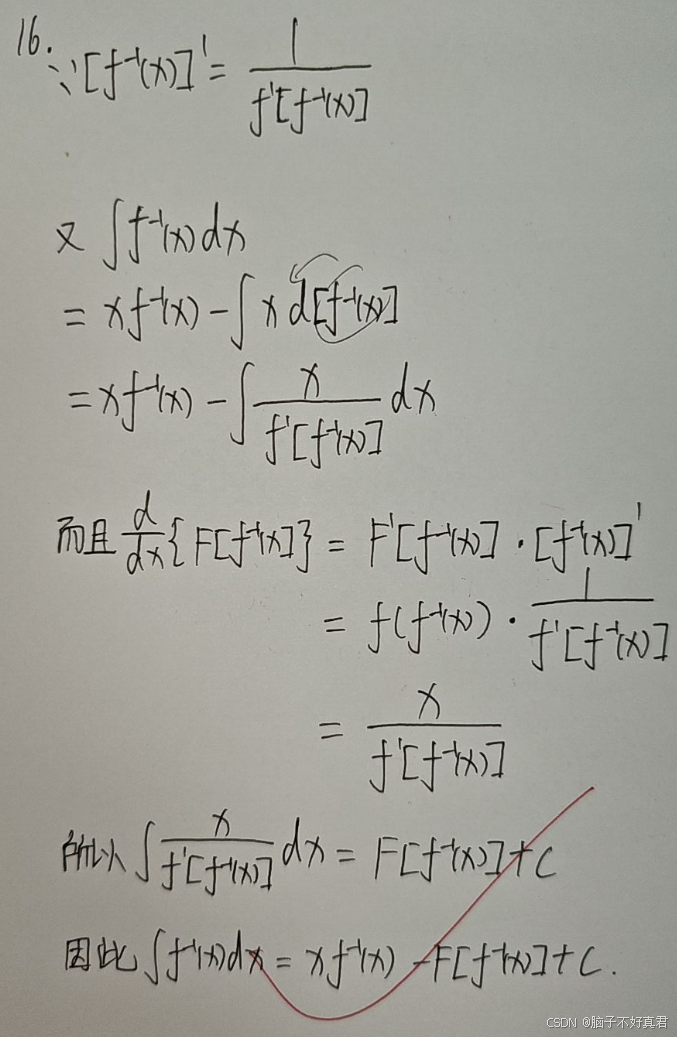 16.
∵[f⁻¹(x)]' = 1/f'[f⁻¹(x)]
又 ∫f⁻¹(x)dx
= xf⁻¹(x) - ∫x d[f⁻¹(x)]
= xf⁻¹(x) - ∫x/f'[f⁻¹(x)] dx
而且 d/dx{F[f⁻¹(x)]} = F'[f⁻¹(x)]·[f⁻¹(x)]'
= f(f⁻¹(x))·1/f'[f⁻¹(x)]
= x/f'[f⁻¹(x)]
所以 ∫x/f'[f⁻¹(x)] dx = F[f⁻¹(x)]+C
因此 ∫f⁻¹(x)dx = xf⁻¹(x) - F[f⁻¹(x)]+C.
CSDN @脑子不好真君